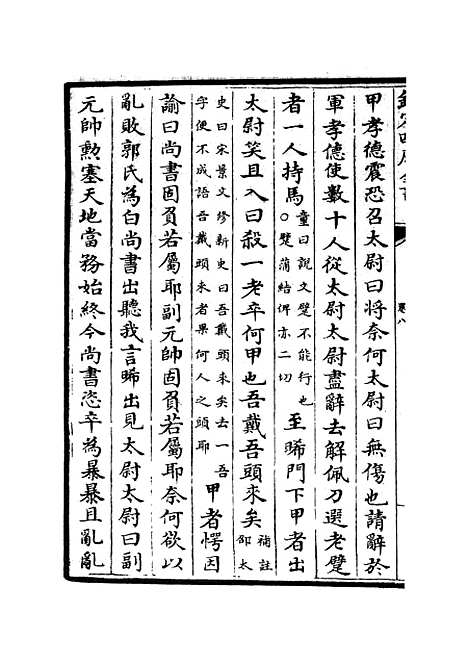 甲孝德震恐召太尉曰将奈何太尉曰無傷也請辭於
軍孝德使數十人從太尉太尉盡辭去解佩刀選老躄
者一人持馬童曰說文躄不能行也○躄蒲結俾亦二切至晞門下甲者出
太尉笑且入曰殺一老卒何甲也吾戴吾頭來矣補註邵太
史曰宋景文修新史曰吾戴頭來矣去一吾字便不成語吾戴頭來者果何人之頭耶甲者愕因
諭曰尚書固負若屬耶副元帥固負若屬耶奈何欲以
亂敗郭氏為白尚書出聽我言晞出見太尉太尉曰副
元帥勲塞天地當務始終今尚書恣卒為暴暴且亂亂